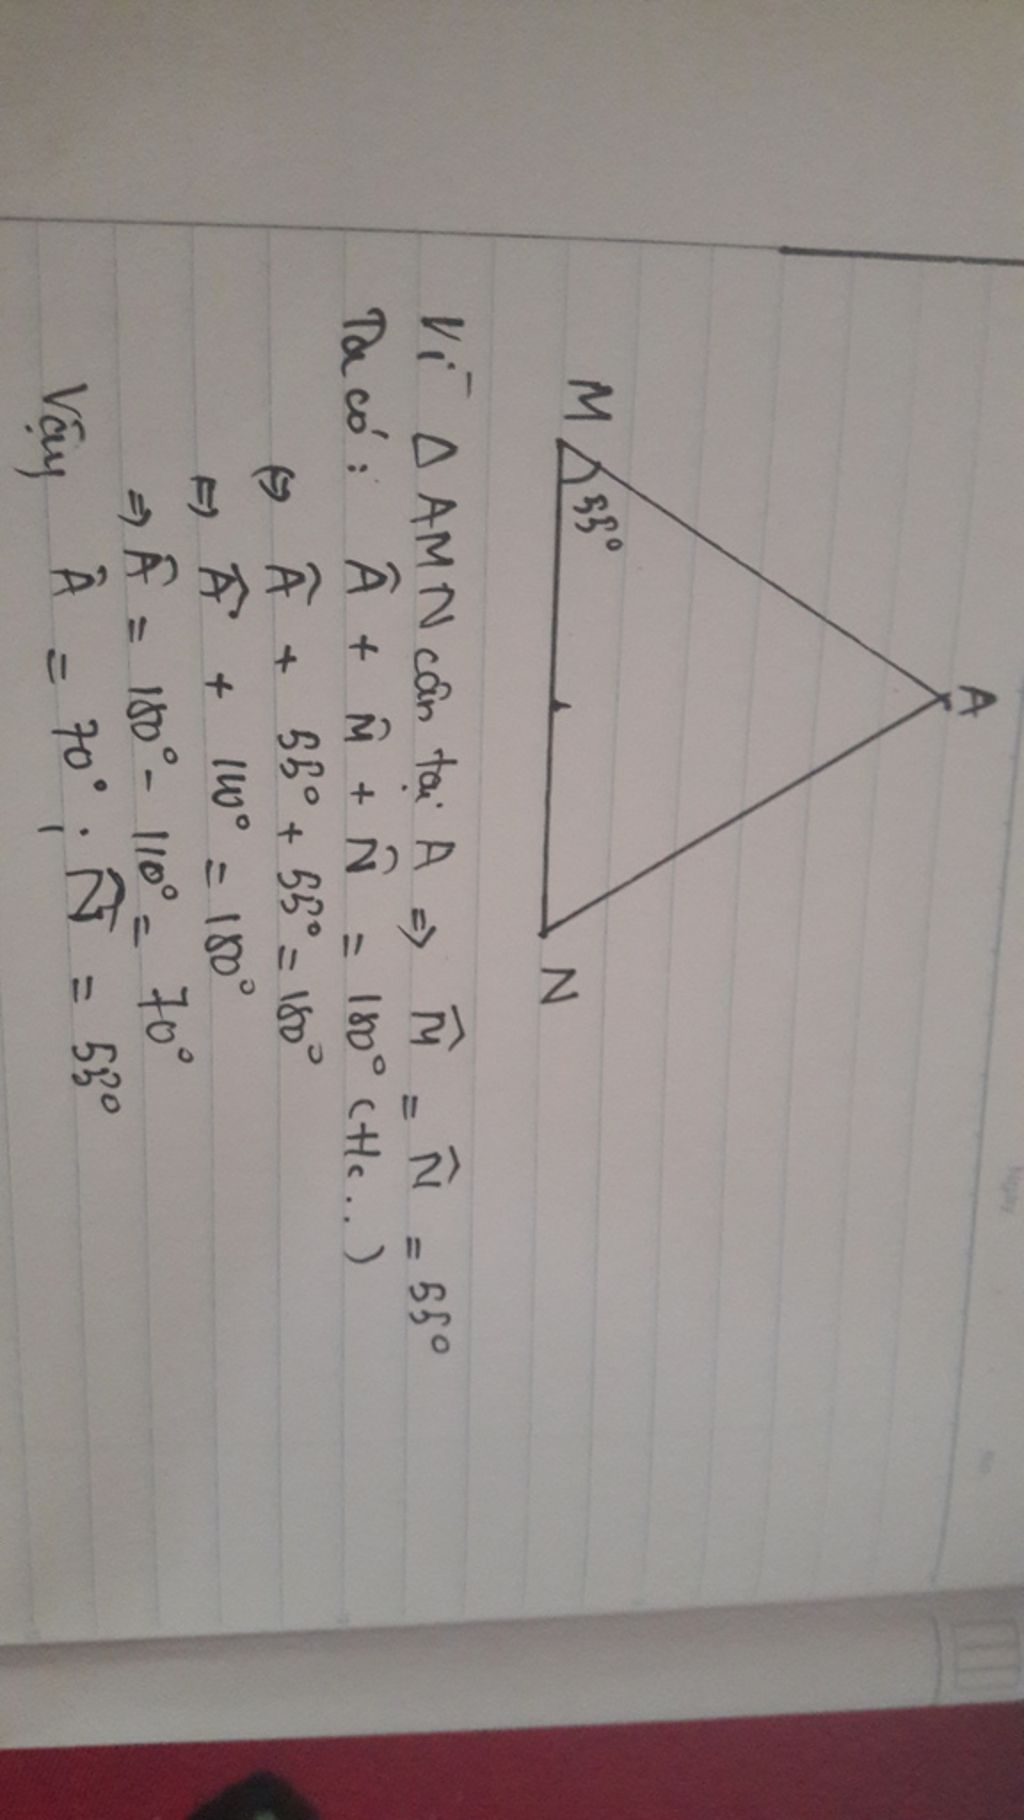 A
M
55°
N
Vì Δ AMN cân tại A => M̂ = N̂ = 55°
Ta có : Â + M̂ + N̂ = 180° (Hc...)
<=> Â + 55° + 55° = 180°
=> Â + 110° = 180°
=> Â = 180° - 110° = 70°
Vậy Â = 70° , N̂ = 55°